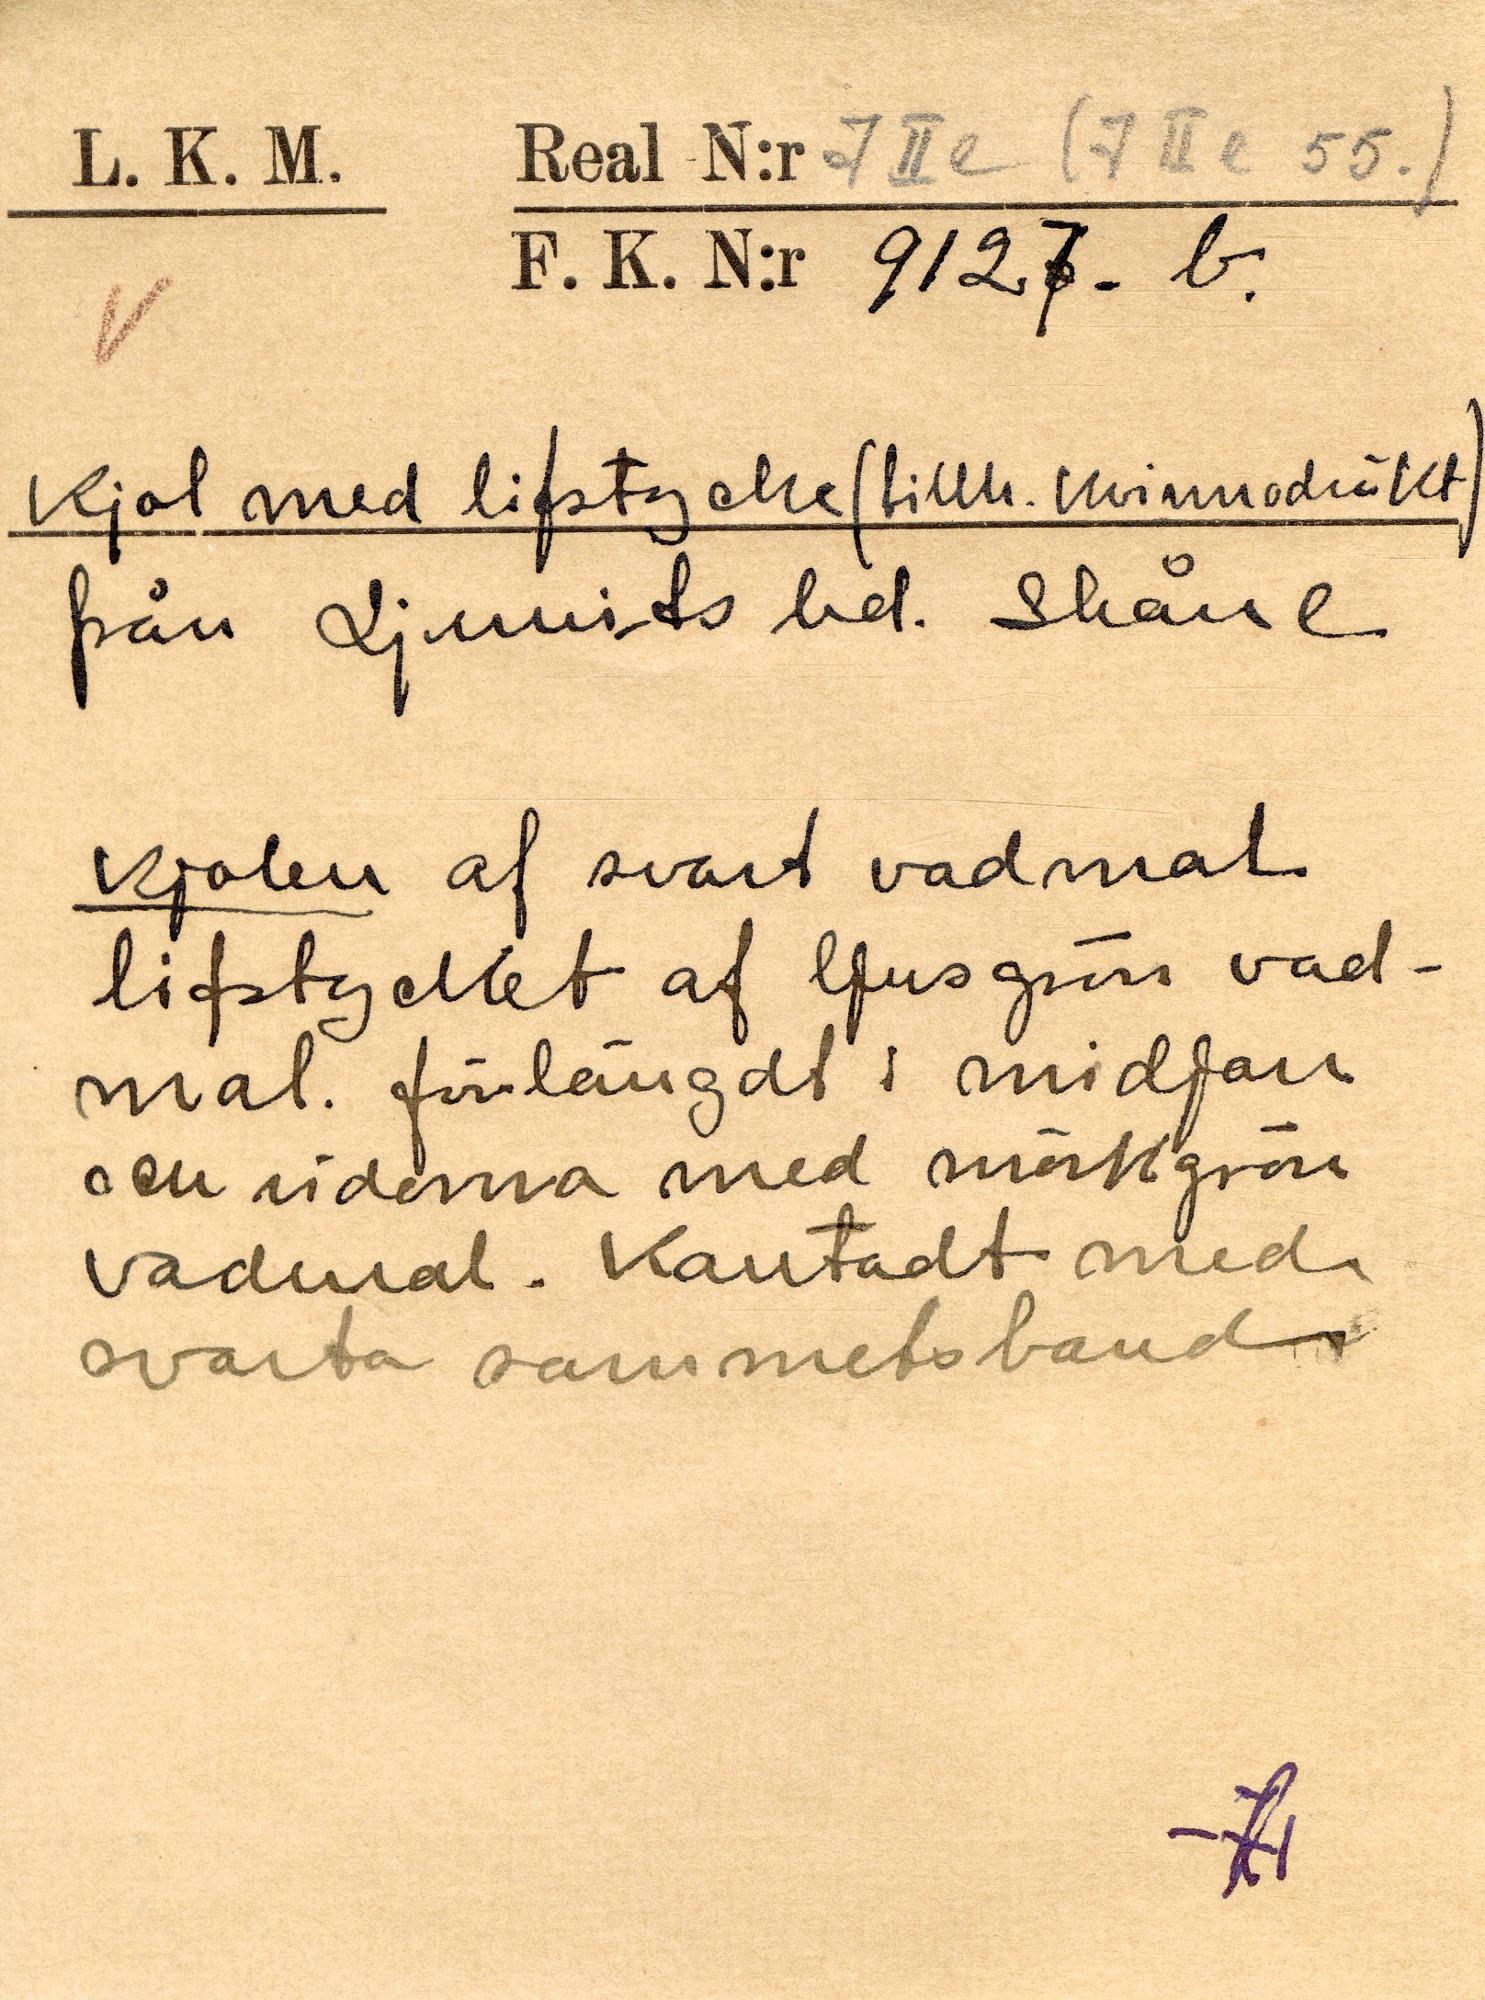 L. K. M. Real N:r 7 II e (7 II e 55.)
F. K. N:r 9127. b.
V
Kjol med lifstycke (tillh. kvinnodräkt)
från Ljunits hd. Skåne
Kjolen af svart vadmal
lifstycket af ljusgrön vad-
mal. förlängdt i midjan
och sidorna med mörkgrön
vadmal. Kantadt med
svarta sammetsband